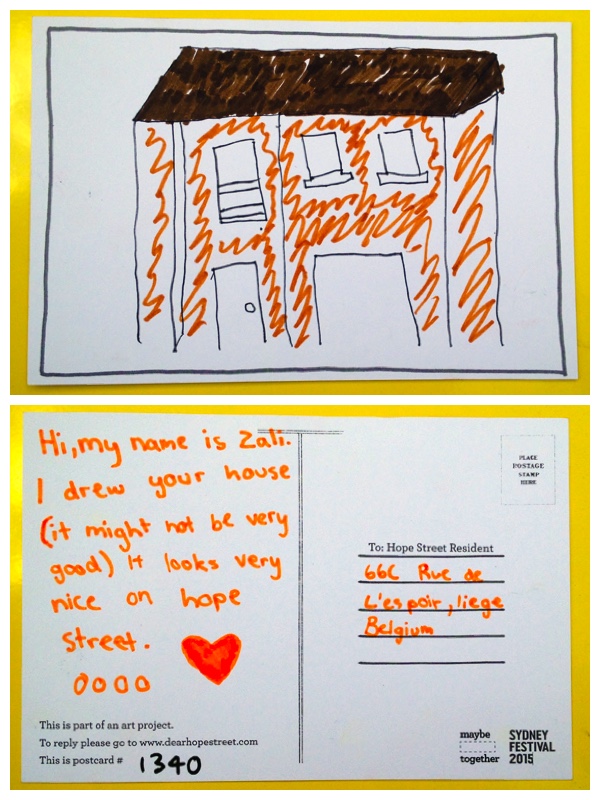 Hi, my name is Zali.
I drew your house
(it might not be very
good) It looks very
nice on hope
street.
0000
This is part of an art project.
To reply please go to www.dearhopestreet.com
This is postcard # 1340
PLACE
POSTAGE
STAMP
HERE
To: Hope Street Resident
66C Rue de
L'espoir, liege
Belgium
maybe
together
SYDNEY
FESTIVAL
2015